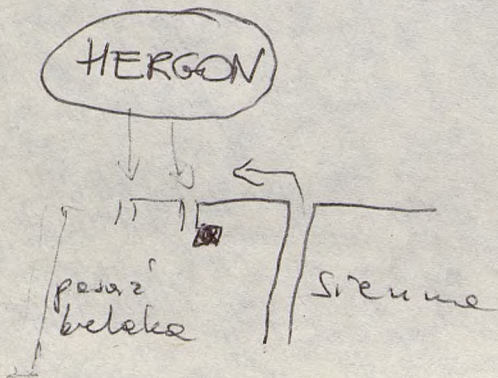 HERGON
pasaż
bielaka
Sienna